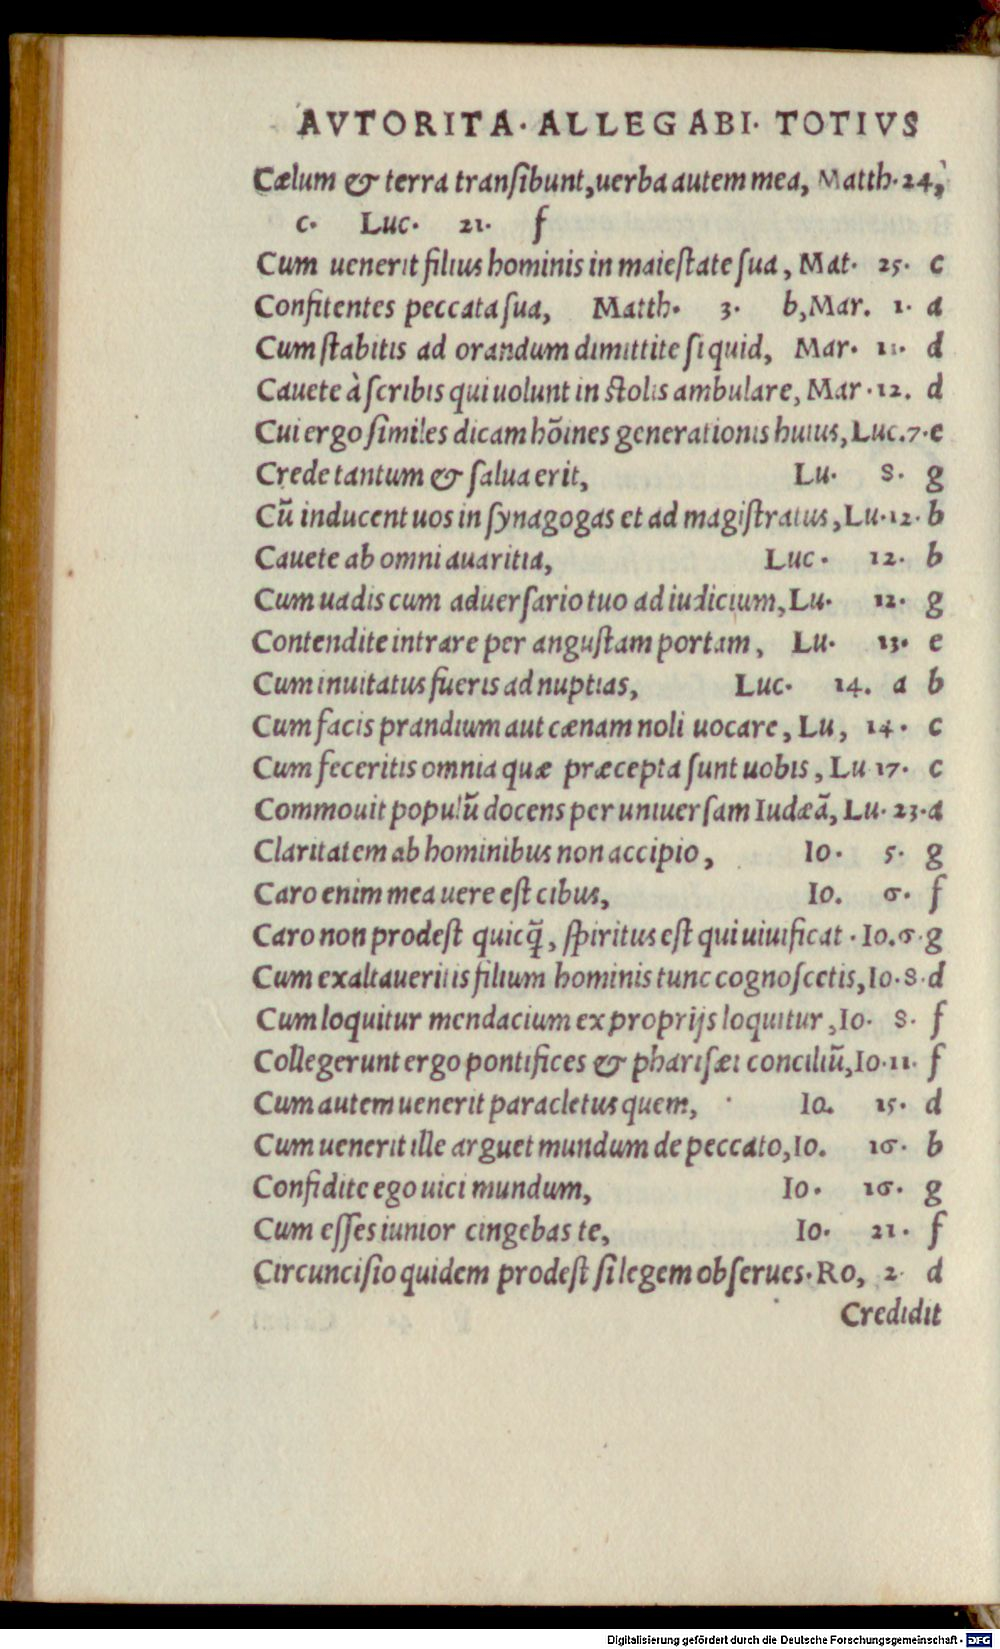 AVTORITA· ALLEGABI· TOTIVS
Cælum & terra tranſibunt,uerba autem mea, Matth·24,
c· Luc· 21· f
Cum uenerit filius hominis in maieſtate ſua, Mat· 25· c
Confitentes peccata ſua, Matth· 3· b,Mar. 1· a
Cum ſtabitis ad orandum dimittite ſi quid, Mar· 11· d
Cauete à ſcribis qui uolunt in ſtolis ambulare, Mar·12. d
Cui ergo ſimiles dicam hõines generationis huius,Luc.7·e
Crede tantum & ſalua erit, Lu· 8· g
Cũ inducent uos in ſynagogas et ad magiſtratus,Lu·12·b
Cauete ab omni auaritia, Luc· 12· b
Cum uadis cum aduerſario tuo ad iudicium,Lu· 12· g
Contendite intrare per anguſtam portam, Lu· 13· e
Cum inuitatus fueris ad nuptias, Luc· 14. a b
Cum facis prandium aut cænam noli uocare, Lu, 14· c
Cum feceritis omnia quæ præcepta ſunt uobis, Lu 17· c
Commouit populũ docens per uniuerſam Iudæã, Lu·23·a
Claritatem ab hominibus non accipio, Io· 5· g
Caro enim mea uere eſt cibus, Io. 6· f
Caro non prodeſt quicq̃, ſpiritus eſt qui uiuificat·Io.6·g
Cum exaltaueritis filium hominis tunc cognoſcetis,Io·8·d
Cum loquitur mendacium ex proprijs loquitur,Io· 8· f
Collegerunt ergo pontifices & phariſæi conciliũ,Io·11· f
Cum autem uenerit paracletus quem, Io. 15· d
Cum uenerit ille arguet mundum de peccato,Io. 16· b
Confidite ego uici mundum, Io· 16· g
Cum eſſes iunior cingebas te, Io· 21· f
Circunciſio quidem prodeſt ſi legem obſerues·Ro, 2· d
Credidit
Digitalisierung gefördert durch die Deutsche Forschungsgemeinschaft - DFG